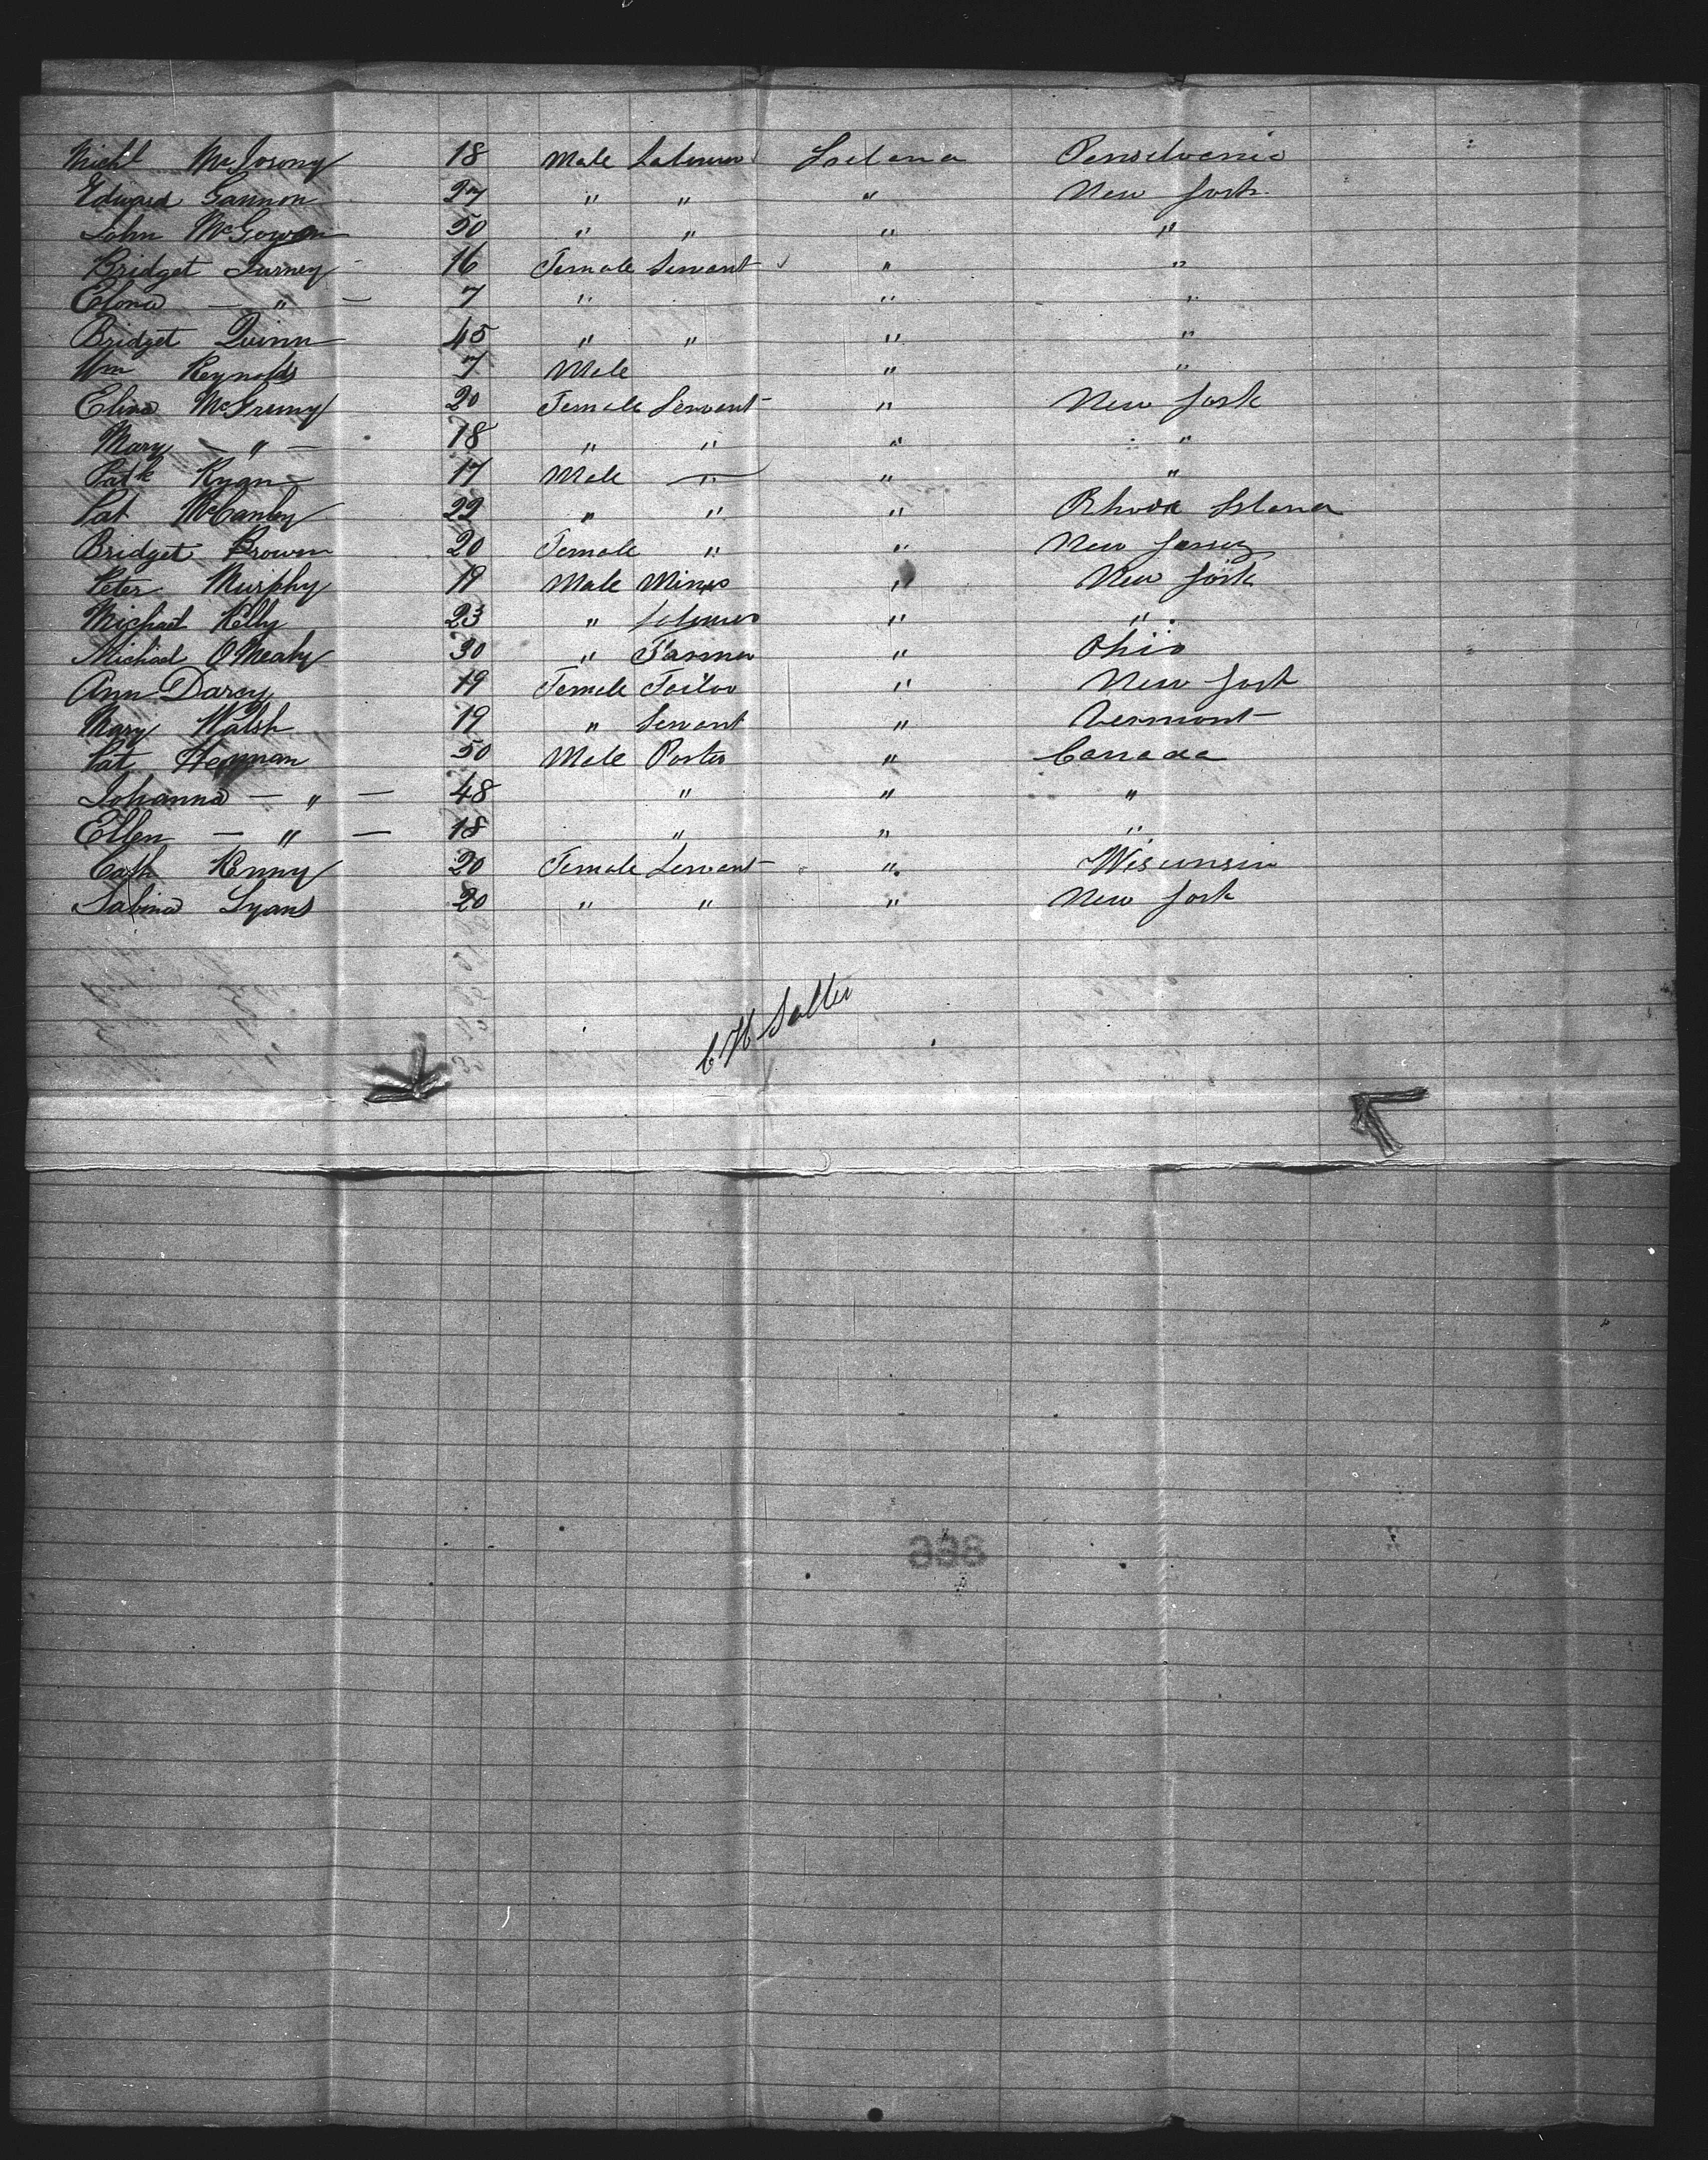 Michl McGorony 18 Male Labourer Ireland Pensilvania
Edward Gannon 27 " " " New York
John McGowan 50 " " " "
Bridget Turney 16 Female Servant " "
— " — 7 " " "
Bridget Quinn 45 " " " "
Wm Reynolds 7 Male " "
Eliza 20 Female Servant " New York
Mary — " — 18 " " " "
Patk Ryan 17 Male " " "
Pat McCanley 22 " " " Rhode Island
Bridget Brown 20 Female " " New Jersey
Peter Murphy 19 Male Miner " New York
Michael Kelly 23 " Labourer " "
Michael OMealy 30 " Farmer " Ohio
Ann Darcy 19 Female Tailor " New York
Mary Walsh 19 " Servant " Vermont
Pat 50 Male Porter " Canada
Johanna — " — 48 " " "
Ellen — " — 18 " " "
Cath Kenny 20 Female Servant " Wisconsin
Sabina Lyans 20 " " " New York
C H Salter
866